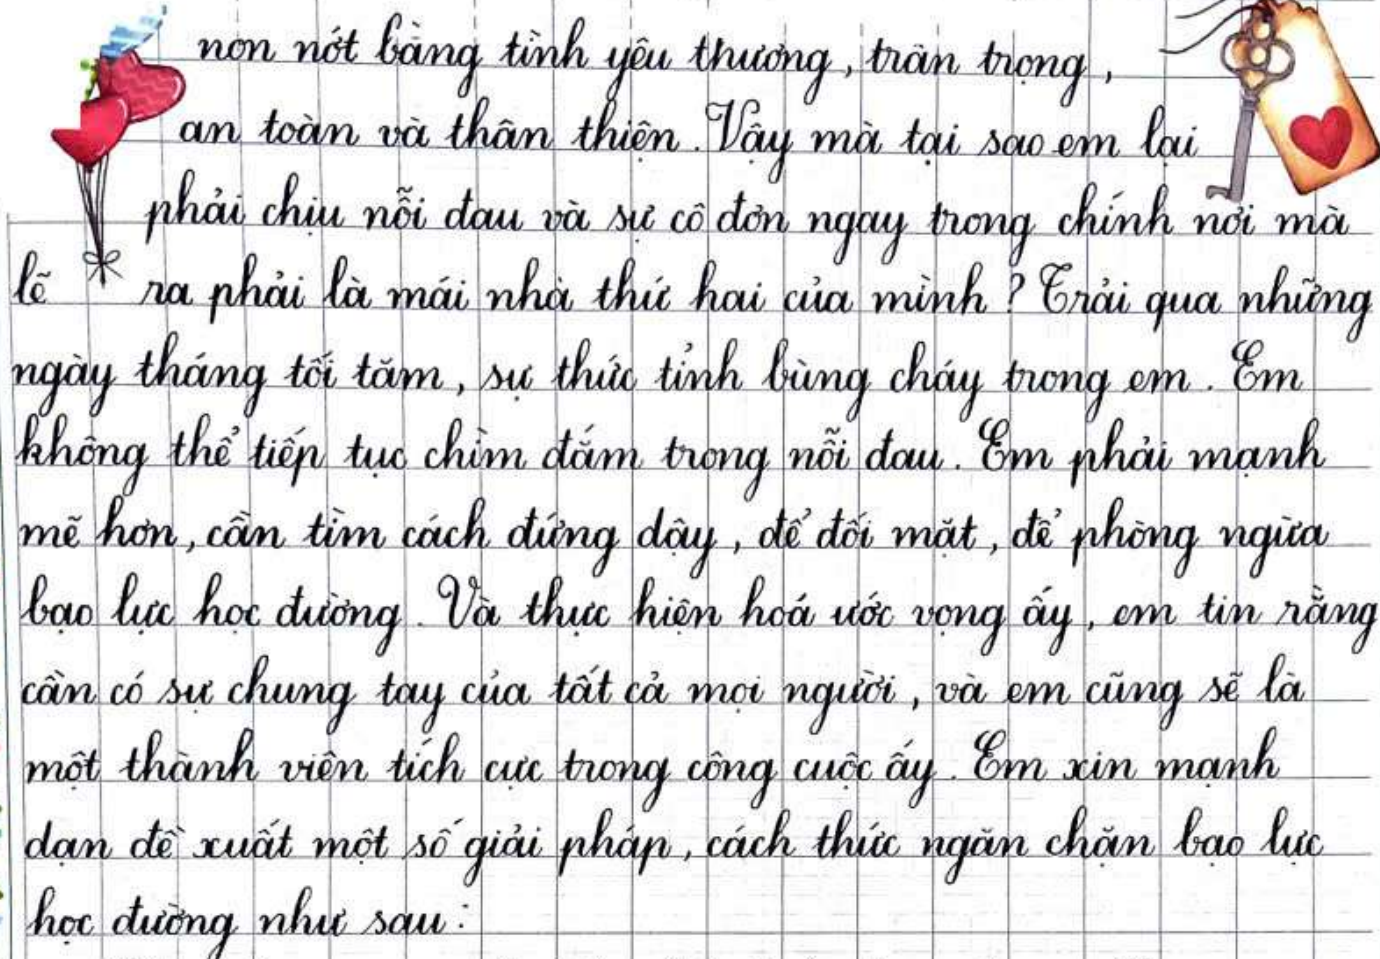 non nớt bằng tình yêu thương, trân trọng,
an toàn và thân thiện. Vậy mà tại sao em lại
phải chịu nỗi đau và sự cô đơn ngay trong chính nơi mà
lẽ ra phải là mái nhà thứ hai của mình ? Trải qua những
ngày tháng tối tăm, sự thức tỉnh bùng cháy trong em. Em
không thể tiếp tục chìm đắm trong nỗi đau. Em phải mạnh
mẽ hơn, cần tìm cách đứng dậy, để đối mặt, để phòng ngừa
bạo lực học đường. Và thực hiện hoá ước vọng ấy, em tin rằng
cần có sự chung tay của tất cả mọi người, và em cũng sẽ là
một thành viên tích cực trong công cuộc ấy. Em xin mạnh
dạn đề xuất một số giải pháp, cách thức ngăn chặn bạo lực
học đường như sau: